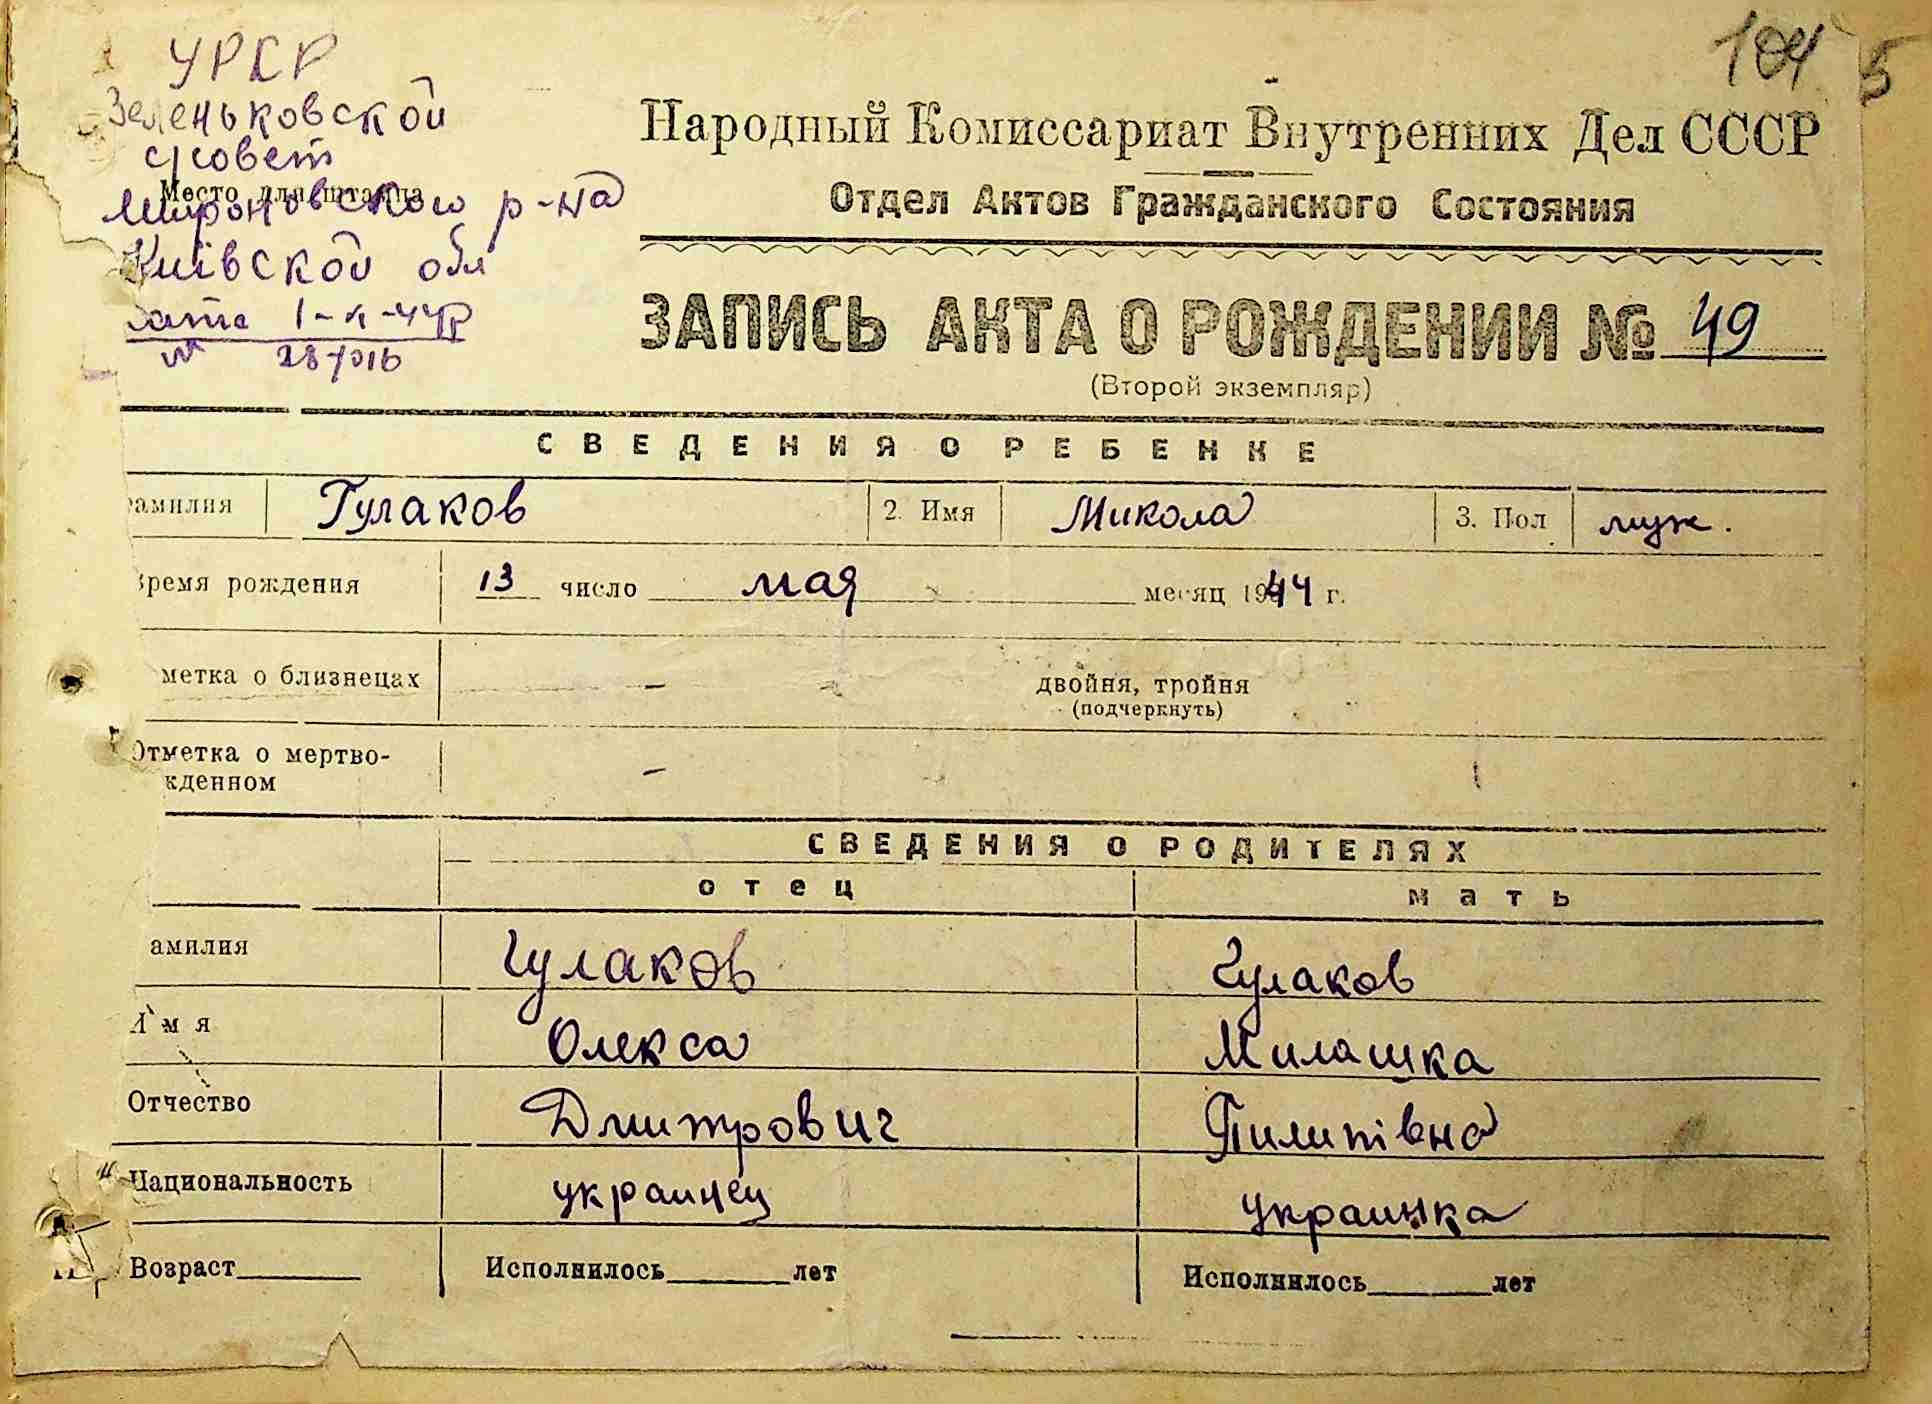 УРСР
104 5
Зеленьковской
с/совет
Место для штампа
Мироновского р-на
Київской обл
Народный Комиссариат Внутренних Дел СССР
Отдел Актов Гражданского Состояния
ЗАПИСЬ АКТА О РОЖДЕНИИ № 49
(Второй экземпляр)
СВЕДЕНИЯ О РЕБЕНКЕ
амилия Гулаков 2. Имя Микола 3. Пол муж.
время рождения 13 число мая месяц 1944 г.
метка о близнецах - двойня, тройня
(подчеркнуть)
Отметка о мертво-
жденном -
СВЕДЕНИЯ О РОДИТЕЛЯХ
отец мать
амилия Гулаков Гулаков
Имя Олекса Милашка
Отчество Дмитрович Пилипівна
Национальность украинец украинка
Возраст Исполнилось лет Исполнилось лет